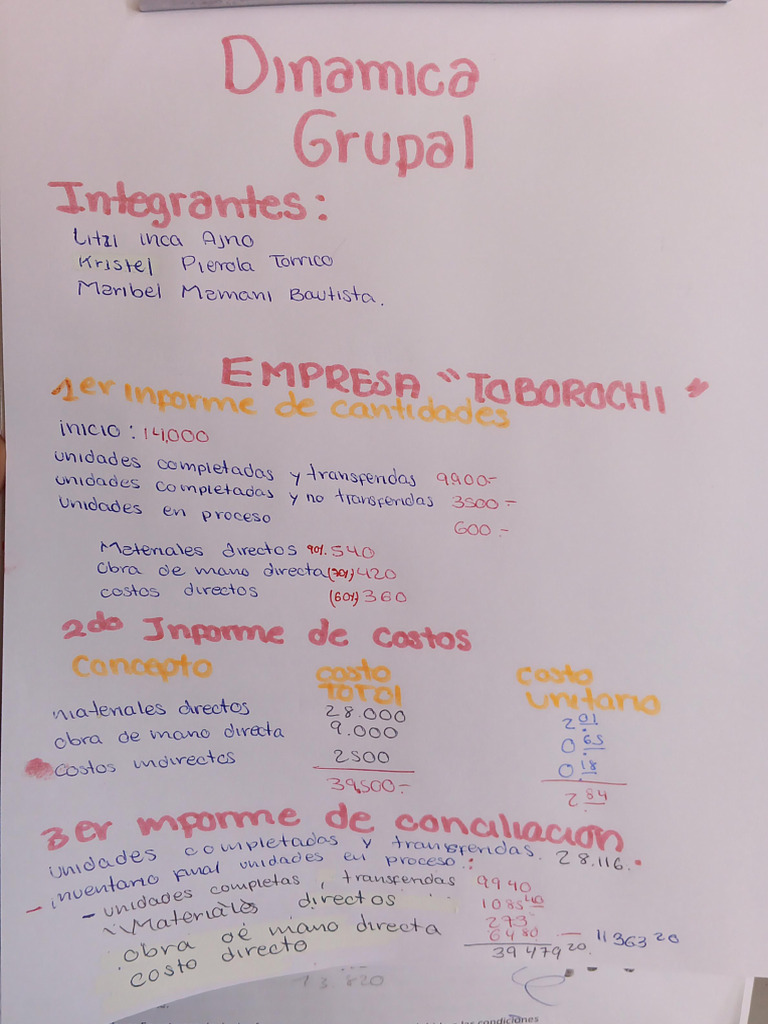 Dinamica
Grupal
Integrantes:
Litzi Inca Ajno
Kristel Pierola Torrico
Maribel Mamani Bautista.
EMPRESA "TOBOROCHI"
1er Informe de cantidades
inicio: 14,000
unidades completadas y transferidas 9900.-
unidades completadas y no transferidas 3500.-
Unidades en proceso 600.-
Materiales directos 90%. 540
Obra de mano directa (70%) 420
costos directos (60%) 360
2do Informe de costos
Concepto costo TOTAl costo unitario
materiales directos 28.000 2 01
obra de mano directa 9.000 0 65
costos indirectos 2500 0 18
39,500.- 2 84
3er Informe de conciliacion
unidades completadas y transferidas. 28.116.
- inventario final unidades en proceso:
- unidades completas, transferidas 9940
Materiales directos 1085 40
obra de mano directa 273
costo directo 64 80 — 11363 20
39479 20.
13.820
las condiciones